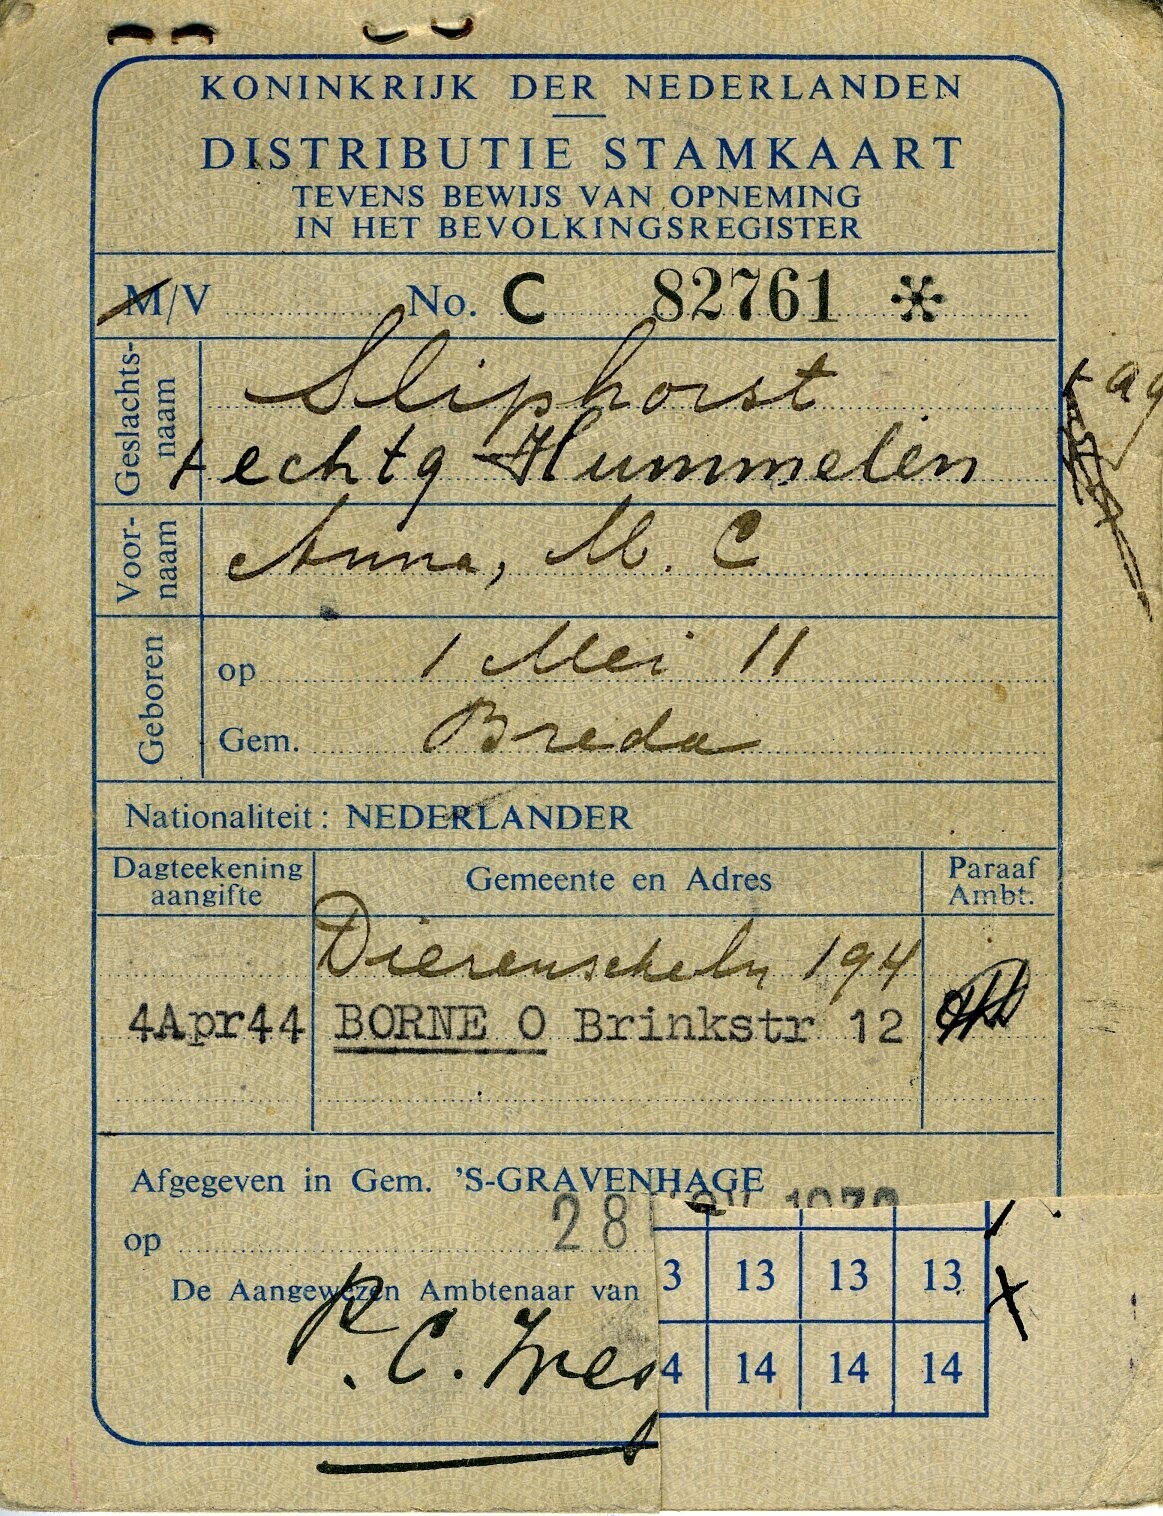 KONINKRIJK DER NEDERLANDEN
DISTRIBUTIE STAMKAART
TEVENS BEWIJS VAN OPNEMING
IN HET BEVOLKINGSREGISTER
M/V No. C 82761 *
Geslachts-
naam
Sliphorst
echtg Hummelen
Voor-
naam
Anna, M. C
Geboren
op 1 Mei 11
Gem. Breda
Nationaliteit: NEDERLANDER
Dagteekening
aangifte
Gemeente en Adres
Paraaf
Ambt.
194
4Apr44 BORNE O Brinkstr 12
Afgegeven in Gem. 'S-GRAVENHAGE
op 28
De Aangewezen Ambtenaar van
3 13 13 13
4 14 14 14